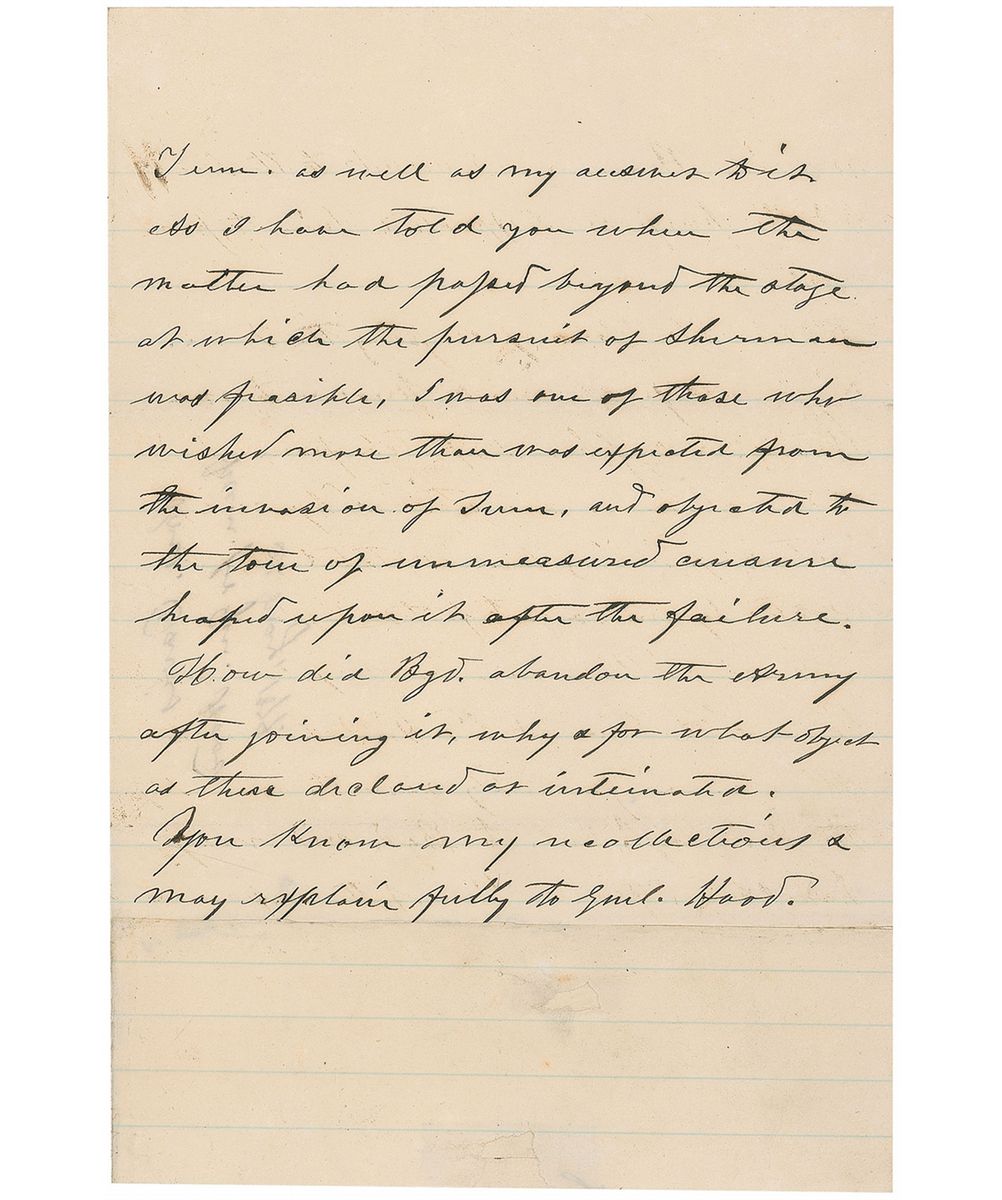 Tenn. as well as my answer to it.
As I have told you when the
matter had passed beyond the stage
at which the pursuit of Sherman
was feasible, I was one of those who
wished more than was expected from
the invasion of Tenn, and objected to
the tone of unmeasured censure
heaped upon it after the failure.
How did Bgd. abandon the Army
after joining it, why & for what object
as these declared or intimated.
You know my recollections &
may explain fully to Genl. Hood.